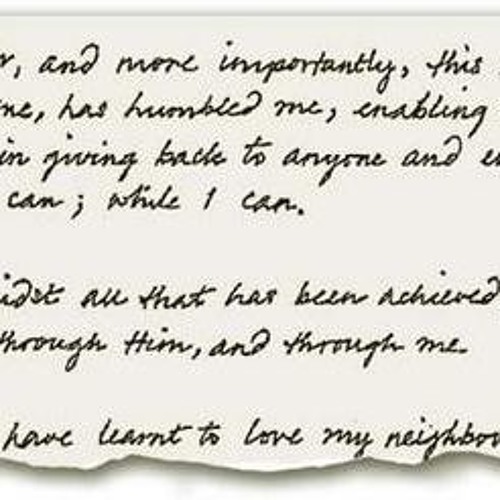 r, and more importantly, this
me, has humbled me, enabling
in giving back to anyone and
can; while I can.
idst all that has been achieved
through Him, and through me.
have learnt to love my neighbou